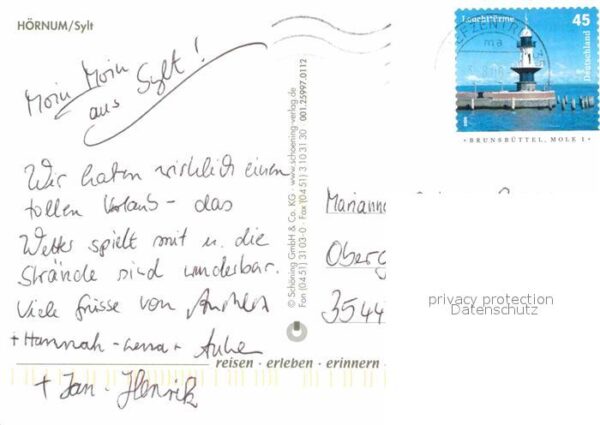 HÖRNUM/Sylt
Moin Moin
aus Sylt!
Wir haben wirklich einen
tollen Urlaub - das
Wetter spielt mit u. die
Strände sind wunderbar.
Viele Grüsse von
+ Hannah - Lena +
+ Jan - Henrik
© Schöning GmbH & Co. KG · www.schoening-verlag.de
Fon (04 51) 31 03-0 · Fax (04 51) 3 10 31 30 001.25997.0112
reisen · erleben · erinnern
BRIEFZENTRUM
ma
Leuchttürme 45
Deutschland
BRUNSBÜTTEL, MOLE 1
Marianne
Oberg
3544
privacy protection
Datenschutz